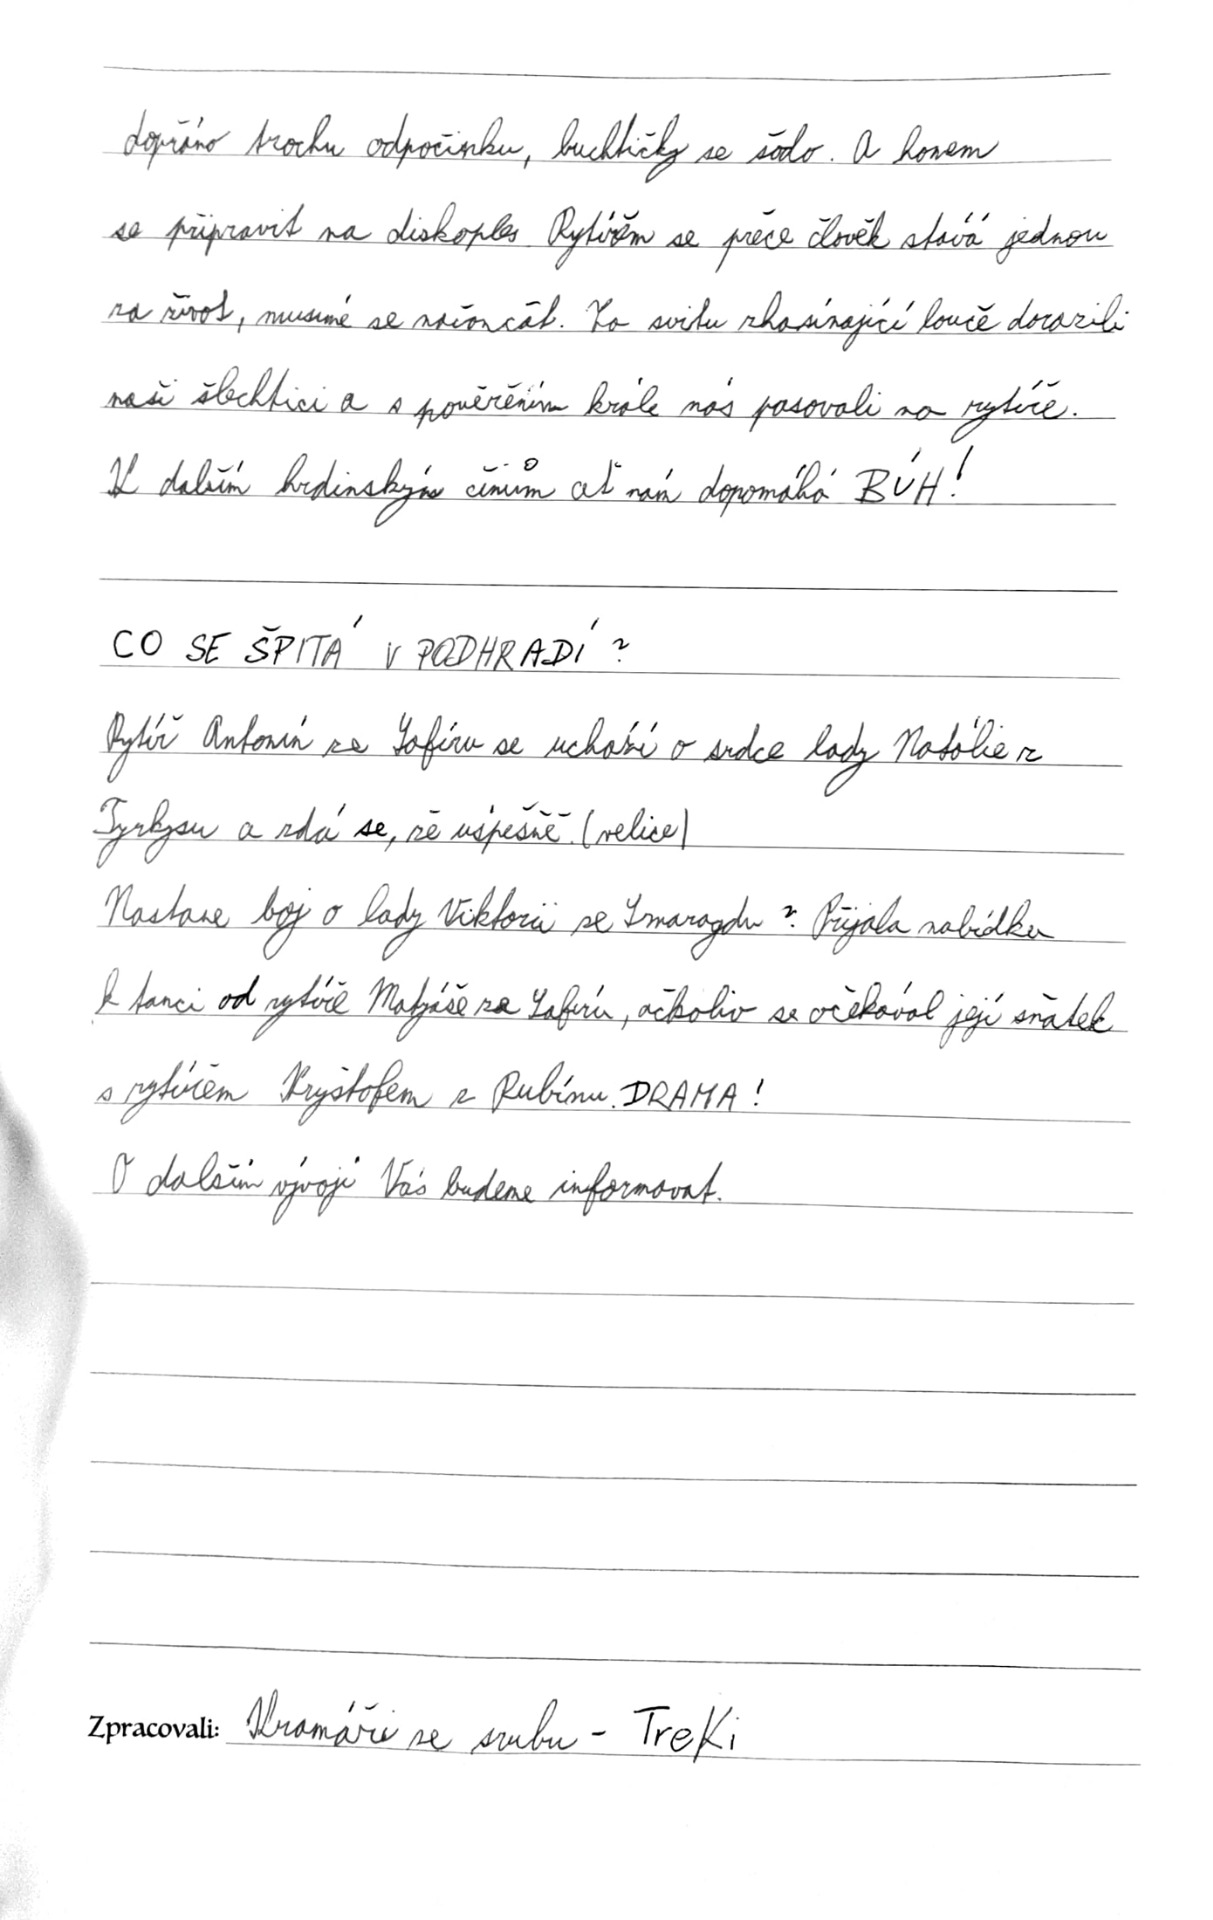 dopřáno trochu odpočinku, buchtičky se šódo. A honem
se připravit na diskoples. Rytířem se přece člověk stává jednou
za život, musíme se načančat. Za svitu zhasínající louče dorazili
naši šlechtici a s pověřením krále nás pasovali na rytíře.
K dalším hrdinským činům ať nám dopomáhá BŮH!
CO SE ŠPITÁ V PODHRADÍ?
Rytíř Antonín ze Safíru se uchází o srdce lady Natálie z
Tyrkysu a zdá se, že úspěšně. (velice)
Nastane boj o lady Viktorii ze Smaragdu? Přijala nabídku
k tanci od rytíře Matyáše ze Safíru, ačkoliv se očekával její sňatek
s rytířem Kryštofem z Rubínu. DRAMA!
O dalším vývoji Vás budeme informovat.
Zpracovali: Kramáři ze srubu - TreKi